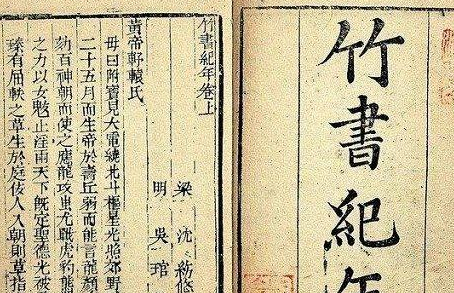 竹書紀年
竹書紀年卷上
梁 沈約修
明 吳琯
黃帝軒轅氏
母曰附寶見大電繞北斗樞星光照郊野
二十五月而生帝於壽丘弱而能言龍顏
劾百神朝而使之應龍攻蚩尤戰虎豹熊
之力以女魃止淫雨天下既定聖德光被
臻有屈軼之草生於庭佞人入朝則草指